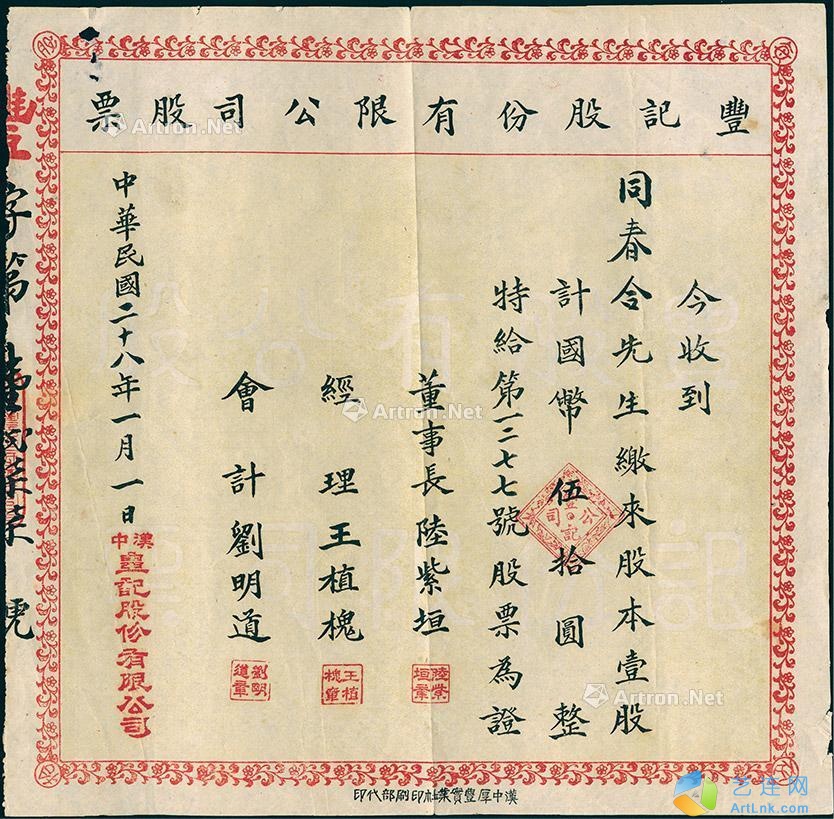 豐記股份有限公司股票
今收到
同春合先生繳來股本壹股
計國幣伍拾圓整
特給第一二七七號股票為證
董事長陸紫垣
陸紫垣章
經理王植槐
王植槐章
會計劉明道
劉明道章
中華民國二十八年一月一日
漢中
豐記股份有限公司
豐記公司
字第
號
漢中厚豐實業社印刷部代印
豐股有公股
記份限司票
Artron.Net
Artron.Net
Artron.Net
艺连网
ArtLnk.com